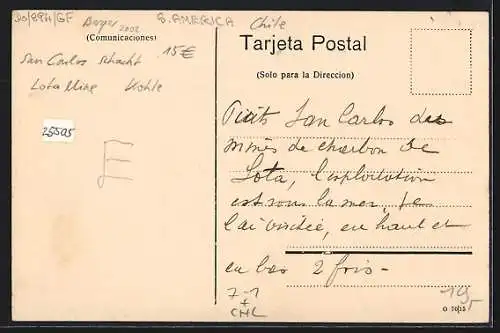 30/894/GF
S. AMERICA
Chile
2002
(Comunicaciones)
15€
San Carlos Schacht
Lota Mine Kohle
25505
E
Tarjeta Postal
(Solo para la Direccion)
Puits San Carlos des
mines de charbon de
Lota, l'exploitation
est sous la mer, je
l'ai visitée, en haut et
en bas 2 fois -
7-1
+
CHL
O 1013